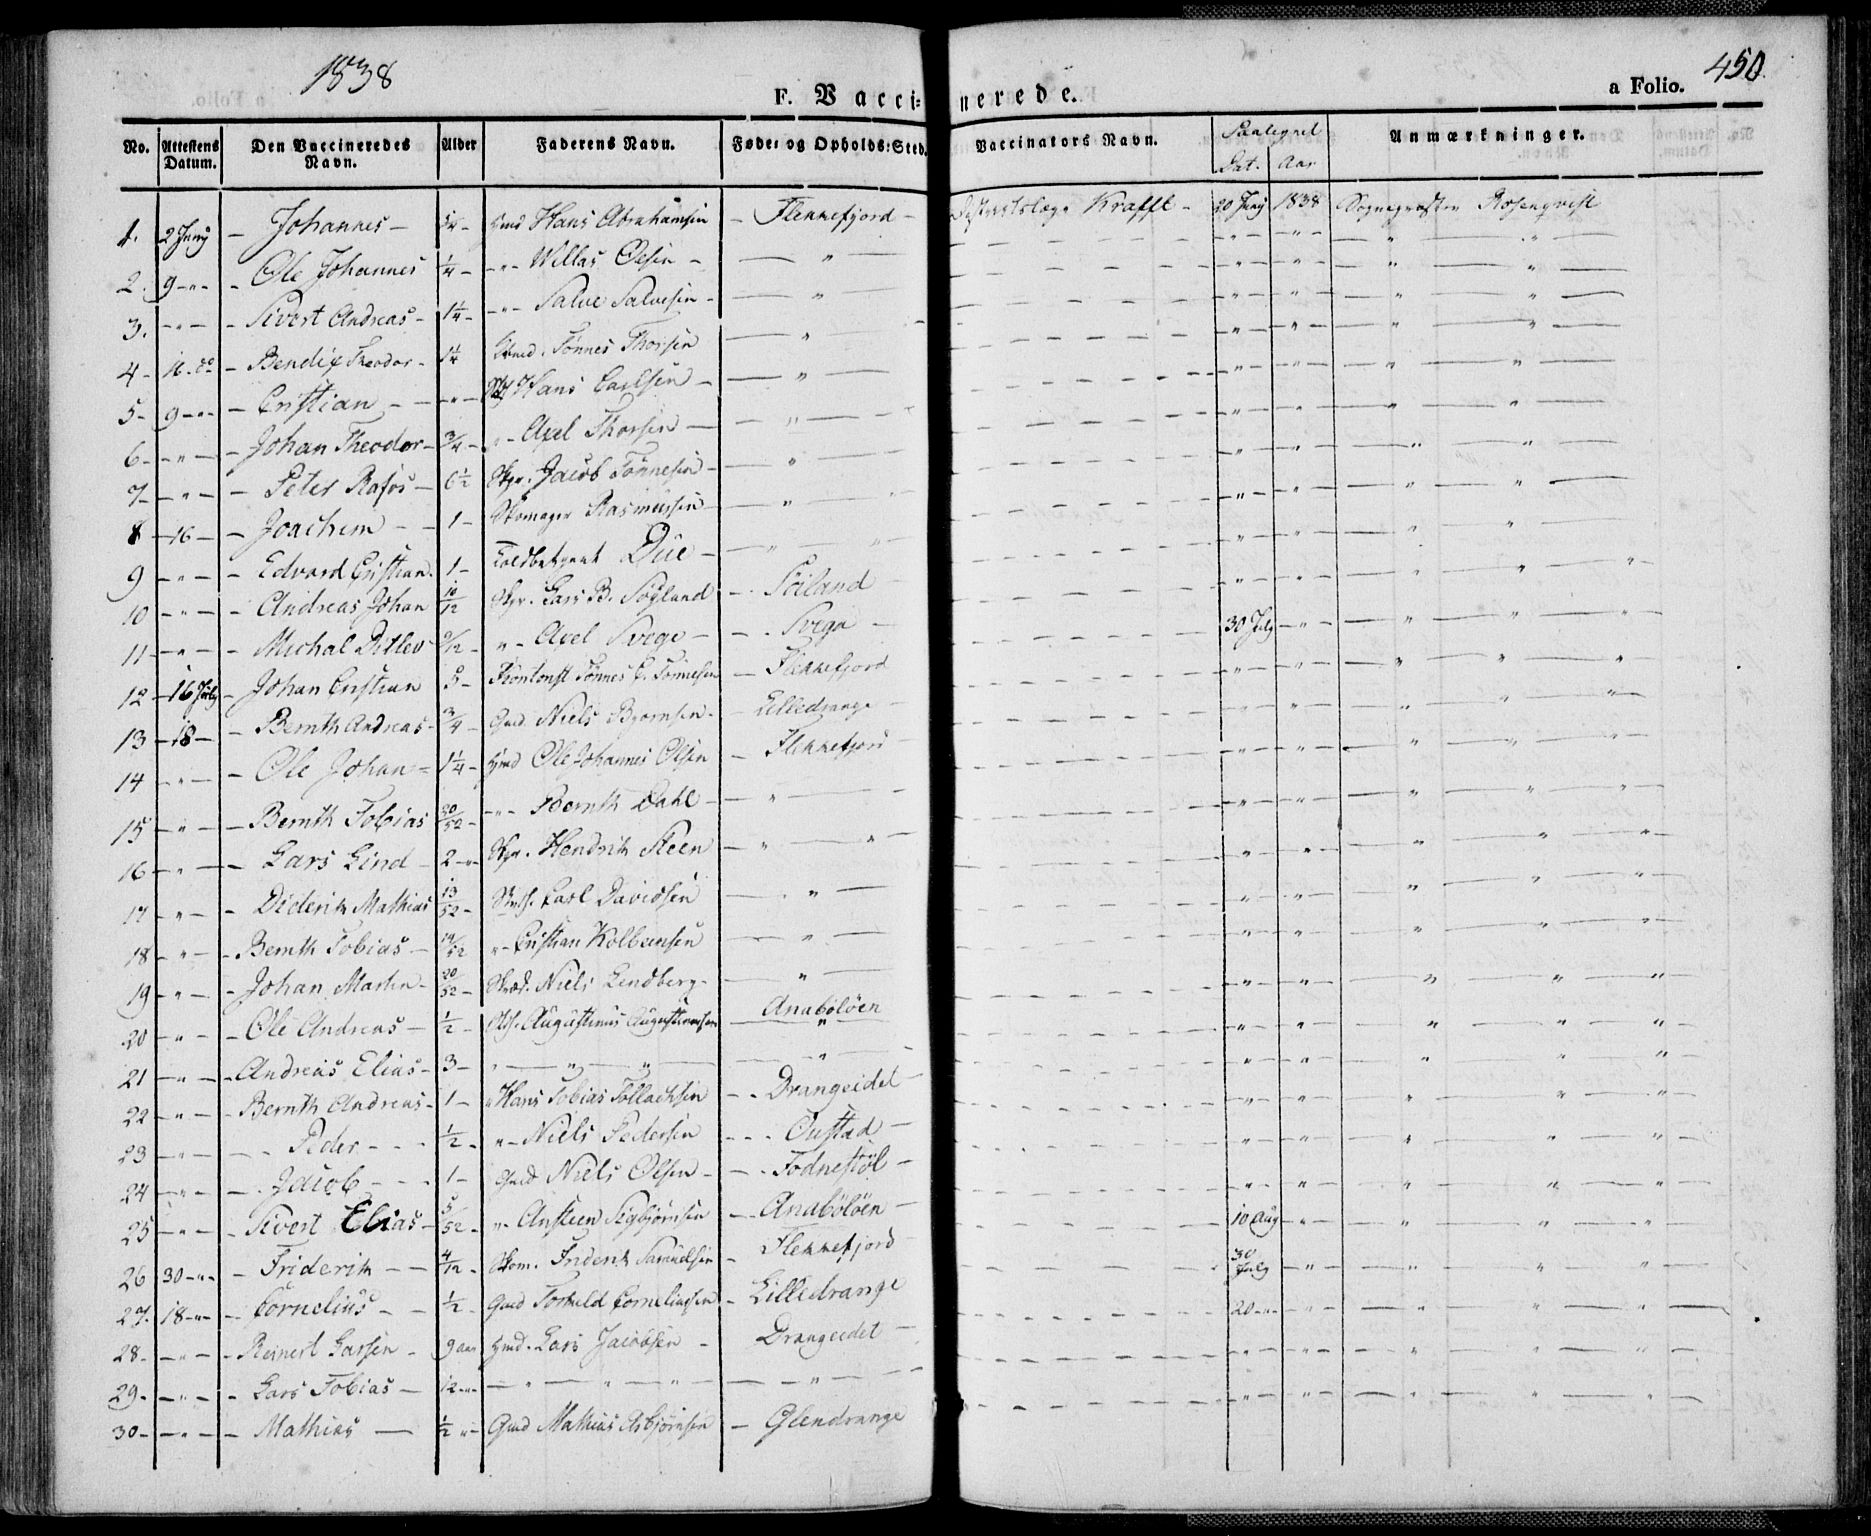 1838
450.
F. Vaccinerede.
a Folio.
No. Attestens Datum. Den Vaccineredes Navn. Alder Faderens Navn. Føde: og Opholds:Sted. Vaccinators Navn. Paategnet Dat. Aar Anmærkninger.
1. 2 Juny – Johannes – Hmd Hans Abrahamsen – Flekkefjord – Krafft – 20 Juny 1838 Rosenqvist
2. 9 – " – Ole Johannes 1/4 – – " – Willas Olsen – – " – – " – – " –
3. – " – – Sivert Andreas – 1 1/4 – – " – Salve Salvesen – – " – – " – – " –
4 – – Bendix Theodor – 1 1/4 Tønnes Thorsen – " – – " – – " –
5 – 9 – " – – Cristian – – " – Hans Carlsen – – " – – " – – " –
6 – – " – – Johan Theodor – 3/4 – " – Axel Thorsen – – " – – " – – " –
7 – – " – – Peter Rafos – 6 1/2 Skpr. Jacob Tønnesen – – " – – " – – " –
8 – 16 – – Joachim – – 1 – Skomager Rasmussen – " – – " – – " –
9 – " – – Edvard Cristian. 1 – Toldbetjent Due – – " – – " – – " –
10 – " – – Andreas Johan 10/12 Skpr. Lars B. Søyland – Söiland – " – – " –
11 – – " – – Michal Ditlev 9/12 – " – Axel Svege – – Svega – 30 July – " –
12 – 16 July – Johan Cristian 5 – Tønnes C. Tønnesen – Flekkefjord – " – – " –
13 – 18 – – Bernth Andreas – 3/4 – Gmd. Niels Bjørnsen – Lilledrange – – " – – " –
14 – " – – Ole Johan – 1 1/4 – Hmd Ole Johannes Olsen – Flekkefjord – " – – " –
15 – " – – Bernth Tobias 20/52 – – " – Bernth Dahl – – " – – " – – " –
16 – " – – Lars Lind – 2 – " – Skpr. Hendrik Steen – " – – " – – " –
17 – " – – Diderik Mathias 13/52 – Carl Davidsen – " – – " – – " –
18 – " – – Bernth Tobias – 14/52 " – Cristian Kolbensen – " – – " – – " –
19 – " – – Johan Martin – 20/52 – Skræd. Niels Lindberg – – " – – " – – " –
20 – " – – Ole Andreas – 1/2 – Augustinus Augustinussen Anabölöen – " – – " –
21 – " – – Andreas Elias – 3 – " – " – " – – " – – " – – " –
22 – " – – Bernth Andreas – 1 – " Hans Tobias Tollachsen – – Drangeidet – – " – – " –
23 – " – – Peder – – – 1/2 – " – Niels Pedersen – – – Oustad – – " – – " –
24 – " – – Jacob – – – 1 – Gmd Niels Olsen – – Fodnestöl – – " – – " –
25 – " – – Sivert Elias – 5/52 – " – Ansteen Sigbjørnsen – Anabölöen – 10 Aug – " –
26 30 – " – – Friderik – – 4/12 – Skom. Friderik Samuelsen – Flekkefjord – 30 July – " –
27. 18 – " – – Cornelius – – 1/2 – Gmd Torkeld Corneliussen – Lilledrange 20 – " – – " –
28 – – " – – Reinert Larsen – 9 aar Hmd. Lars Jacobsen – Drangeidet – – " – – " –
29 – – " – – Lars Tobias – 12 – " – – " – " – " – – " – – " – – " –
30 – – " – – Mathias – 1/2 " – Gmd Mathias Asbjørnsen – Glendrange – " – – " –